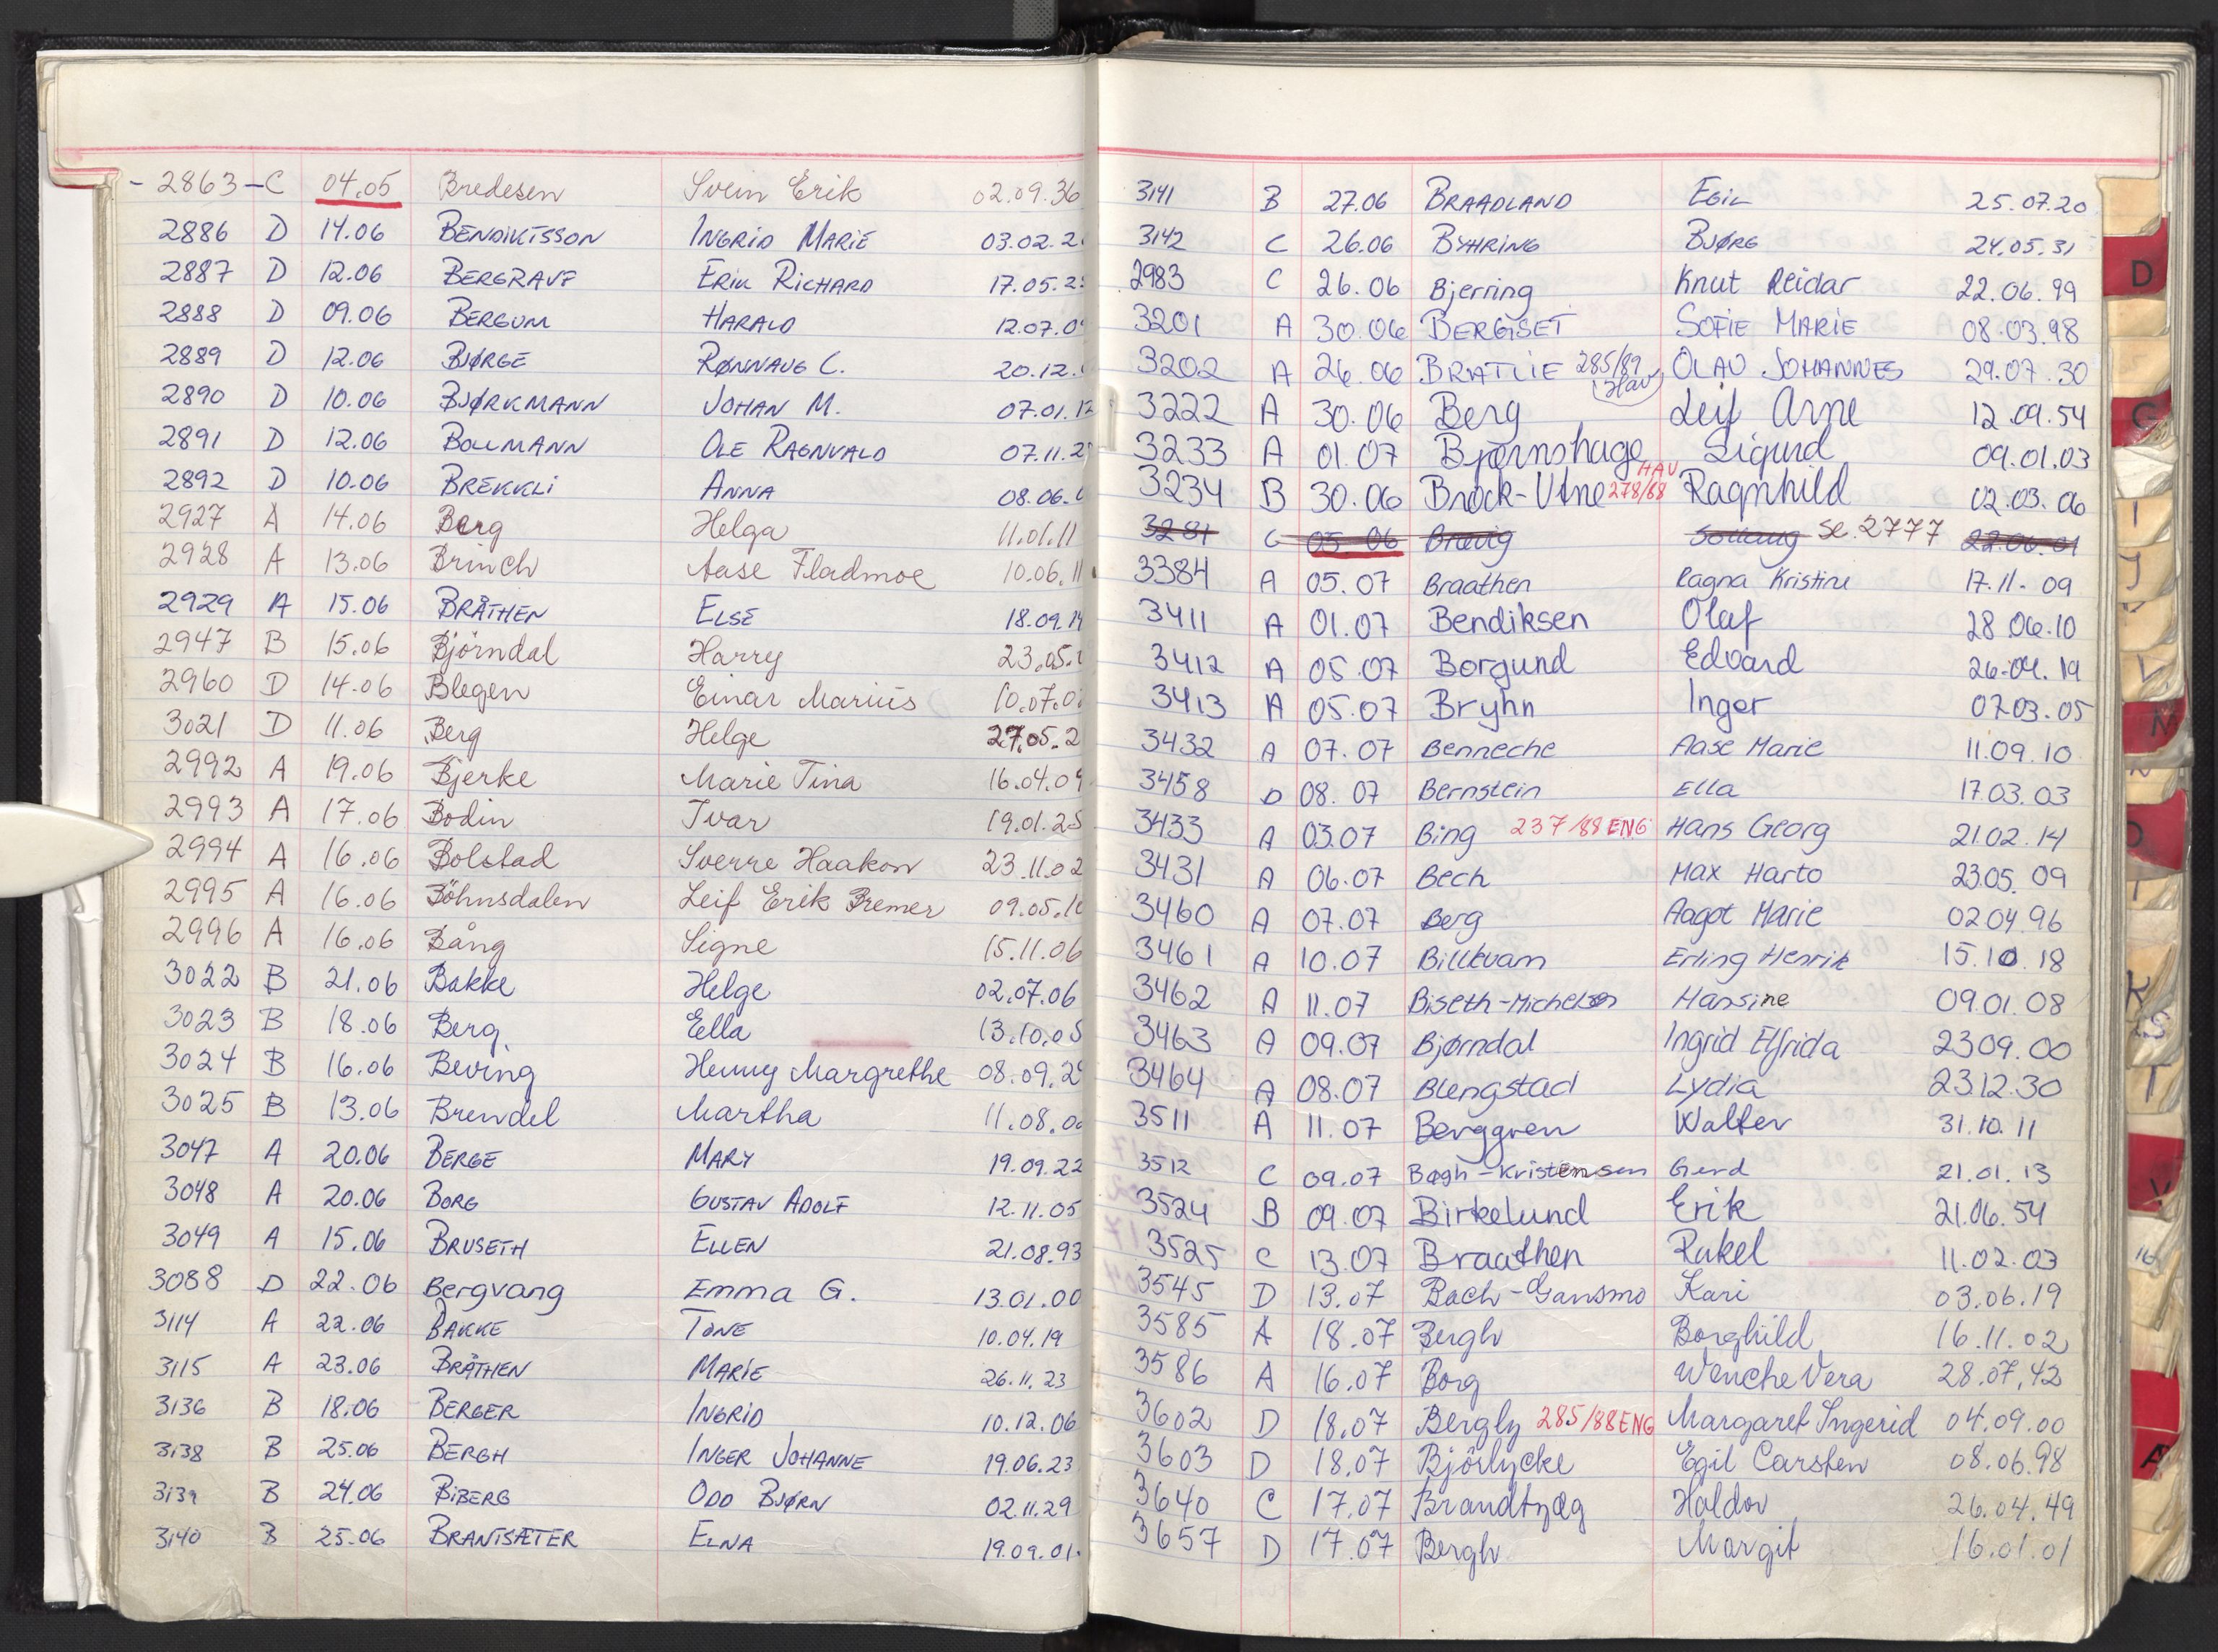 - 2863 - C 04.05 Bredesen Svein Erik 02.09.36
2886 D 14.06 BENDIKTSSON INGRID MARIE 03.02.2
2887 D 12.06 BERGRAVF ERIK RICHARD 17.05.2
2888 D 09.06 BERGUM HARALD 12.07.0
2889 D 12.06 BJØRGE RØNNAUG C. 20.12.
2890 D 10.06 BJØRKMANN JOHAN M. 07.01.12
2891 D 12.06 BOLLMANN OLE RAGNVALD 07.11.2
2892 D 10.06 BREKKLI ANNA 08.06.
2927 A 14.06 Berg Helga 11.01.11
2928 A 13.06 Brinch Aase Fladmoe 10.06.11
2929 A 15.06 BRÅTHEN ELSE 18.09.14
2947 B 15.06 Bjørndal Harry 23.05.
2960 D 14.06 Blegen Einar Marius 10.07.0
3021 D 11.06 Berg Helge 27.05.2
2992 A 19.06 Bjerke Marie Tina 16.04.09
2993 A 17.06 Bodin Ivar 19.01.25
2994 A 16.06 Bolstad Sverre Haakon 23.11.02
2995 A 16.06 Böhnsdalen Leif Erik Bremer 09.05.1
2996 A 16.06 Bång Signe 15.11.06
3022 B 21.06 Bakke Helge 02.07.06
3023 B 18.06 Berg Ella 13.10.05
3024 B 16.06 Beving Henny Margrethe 08.09.29
3025 B 13.06 Brendel Martha 11.08.0
3047 A 20.06 BERGE MARY 19.09.22
3048 A 20.06 BORG GUSTAV ADOLF 12.11.05
3049 A 15.06 BRUSETH ELLEN 21.08.93
3088 D 22.06 Bergvang Emma G. 13.01.00
3114 A 22.06 BAKKE TONE 10.04.19
3115 A 23.06 BRÅTHEN MARIE 26.11.23
3136 B 18.06 BERGER INGRID 10.12.06
3138 B 25.06 BERGH INGER JOHANNE 19.06.23
3139 B 24.06 BIBERG ODD BJØRN 02.11.29
3140 B 25.06 BRANTSÆTER ELNA 19.09.01
3141 B 27.06 BRAADLAND EGIL 25.07.20
3142 C 26.06 BYHRING BJØRG 24.05.31
2983 C 26.06 Bjerring Knut Reidar 22.06.99
3201 A 30.06 BERGISET SOFIE MARIE 08.03.98
3202 A 26.06 BRATLIE 285/89 Hav OLAV JOHANNES 29.07.30
3222 A 30.06 Berg Leif Arne 12.09.54
3233 A 01.07 Bjørnshage Sigurd 09.01.03
3234 B 30.06 Brock-Utne 278/88 HAV Ragnhild 02.03.06
3281 C 05 06 Brævig Solveig Se. 2777 22.06.01
3384 A 05.07 Braathen Ragna Kristine 17.11.09
3411 A 01.07 Bendiksen Olaf 28.06.10
3412 A 05.07 Borgund Edvard 26.04.19
3413 A 05.07 Bryhn Inger 07.03.05
3432 A 07.07 Benneche Aase Marie 11.09.10
3458 D 08.07 Bernstein Ella 17.03.03
3433 A 03.07 Bing 237/88 ENG Hans Georg 21.02.14
3431 A 06.07 Bech Max Harto 23.05.09
3460 A 07.07 Berg Aagot Marie 02.04.96
3461 A 10.07 Billkvam Erling Henrik 15.10.18
3462 A 11.07 Biseth-Michelsen Hansine 09.01.08
3463 A 09.07 Bjørndal Ingrid Elfrida 23.09.00
3464 A 08.07 Blengstad Lydia 23.12.30
3511 A 11.07 Berggren Walter 31.10.11
3512 C 09.07 Bøgh-Kristensen Gerd 21.01.13
3524 B 09.07 Birkelund Erik 21.06.54
3525 C 13.07 Braathen Rakel 11.02.03
3545 D 13.07 Bach-Gansmo Kari 03.06.19
3585 A 18.07 Bergh Borghild 16.11.02
3586 A 16.07 Borg Wenche Vera 28.07.42
3602 D 18.07 Bergly 285/88 ENG Margaret Ingerid 04.09.00
3603 D 18.07 Björlycke Egil Carsten 08.06.98
3640 C 17.07 Brandtzæg Haldor 26.04.49
3657 D 17.07 Bergh Margit 16.01.01
D
G
I
J
V
M
N
O
K
S
T
V
16
A